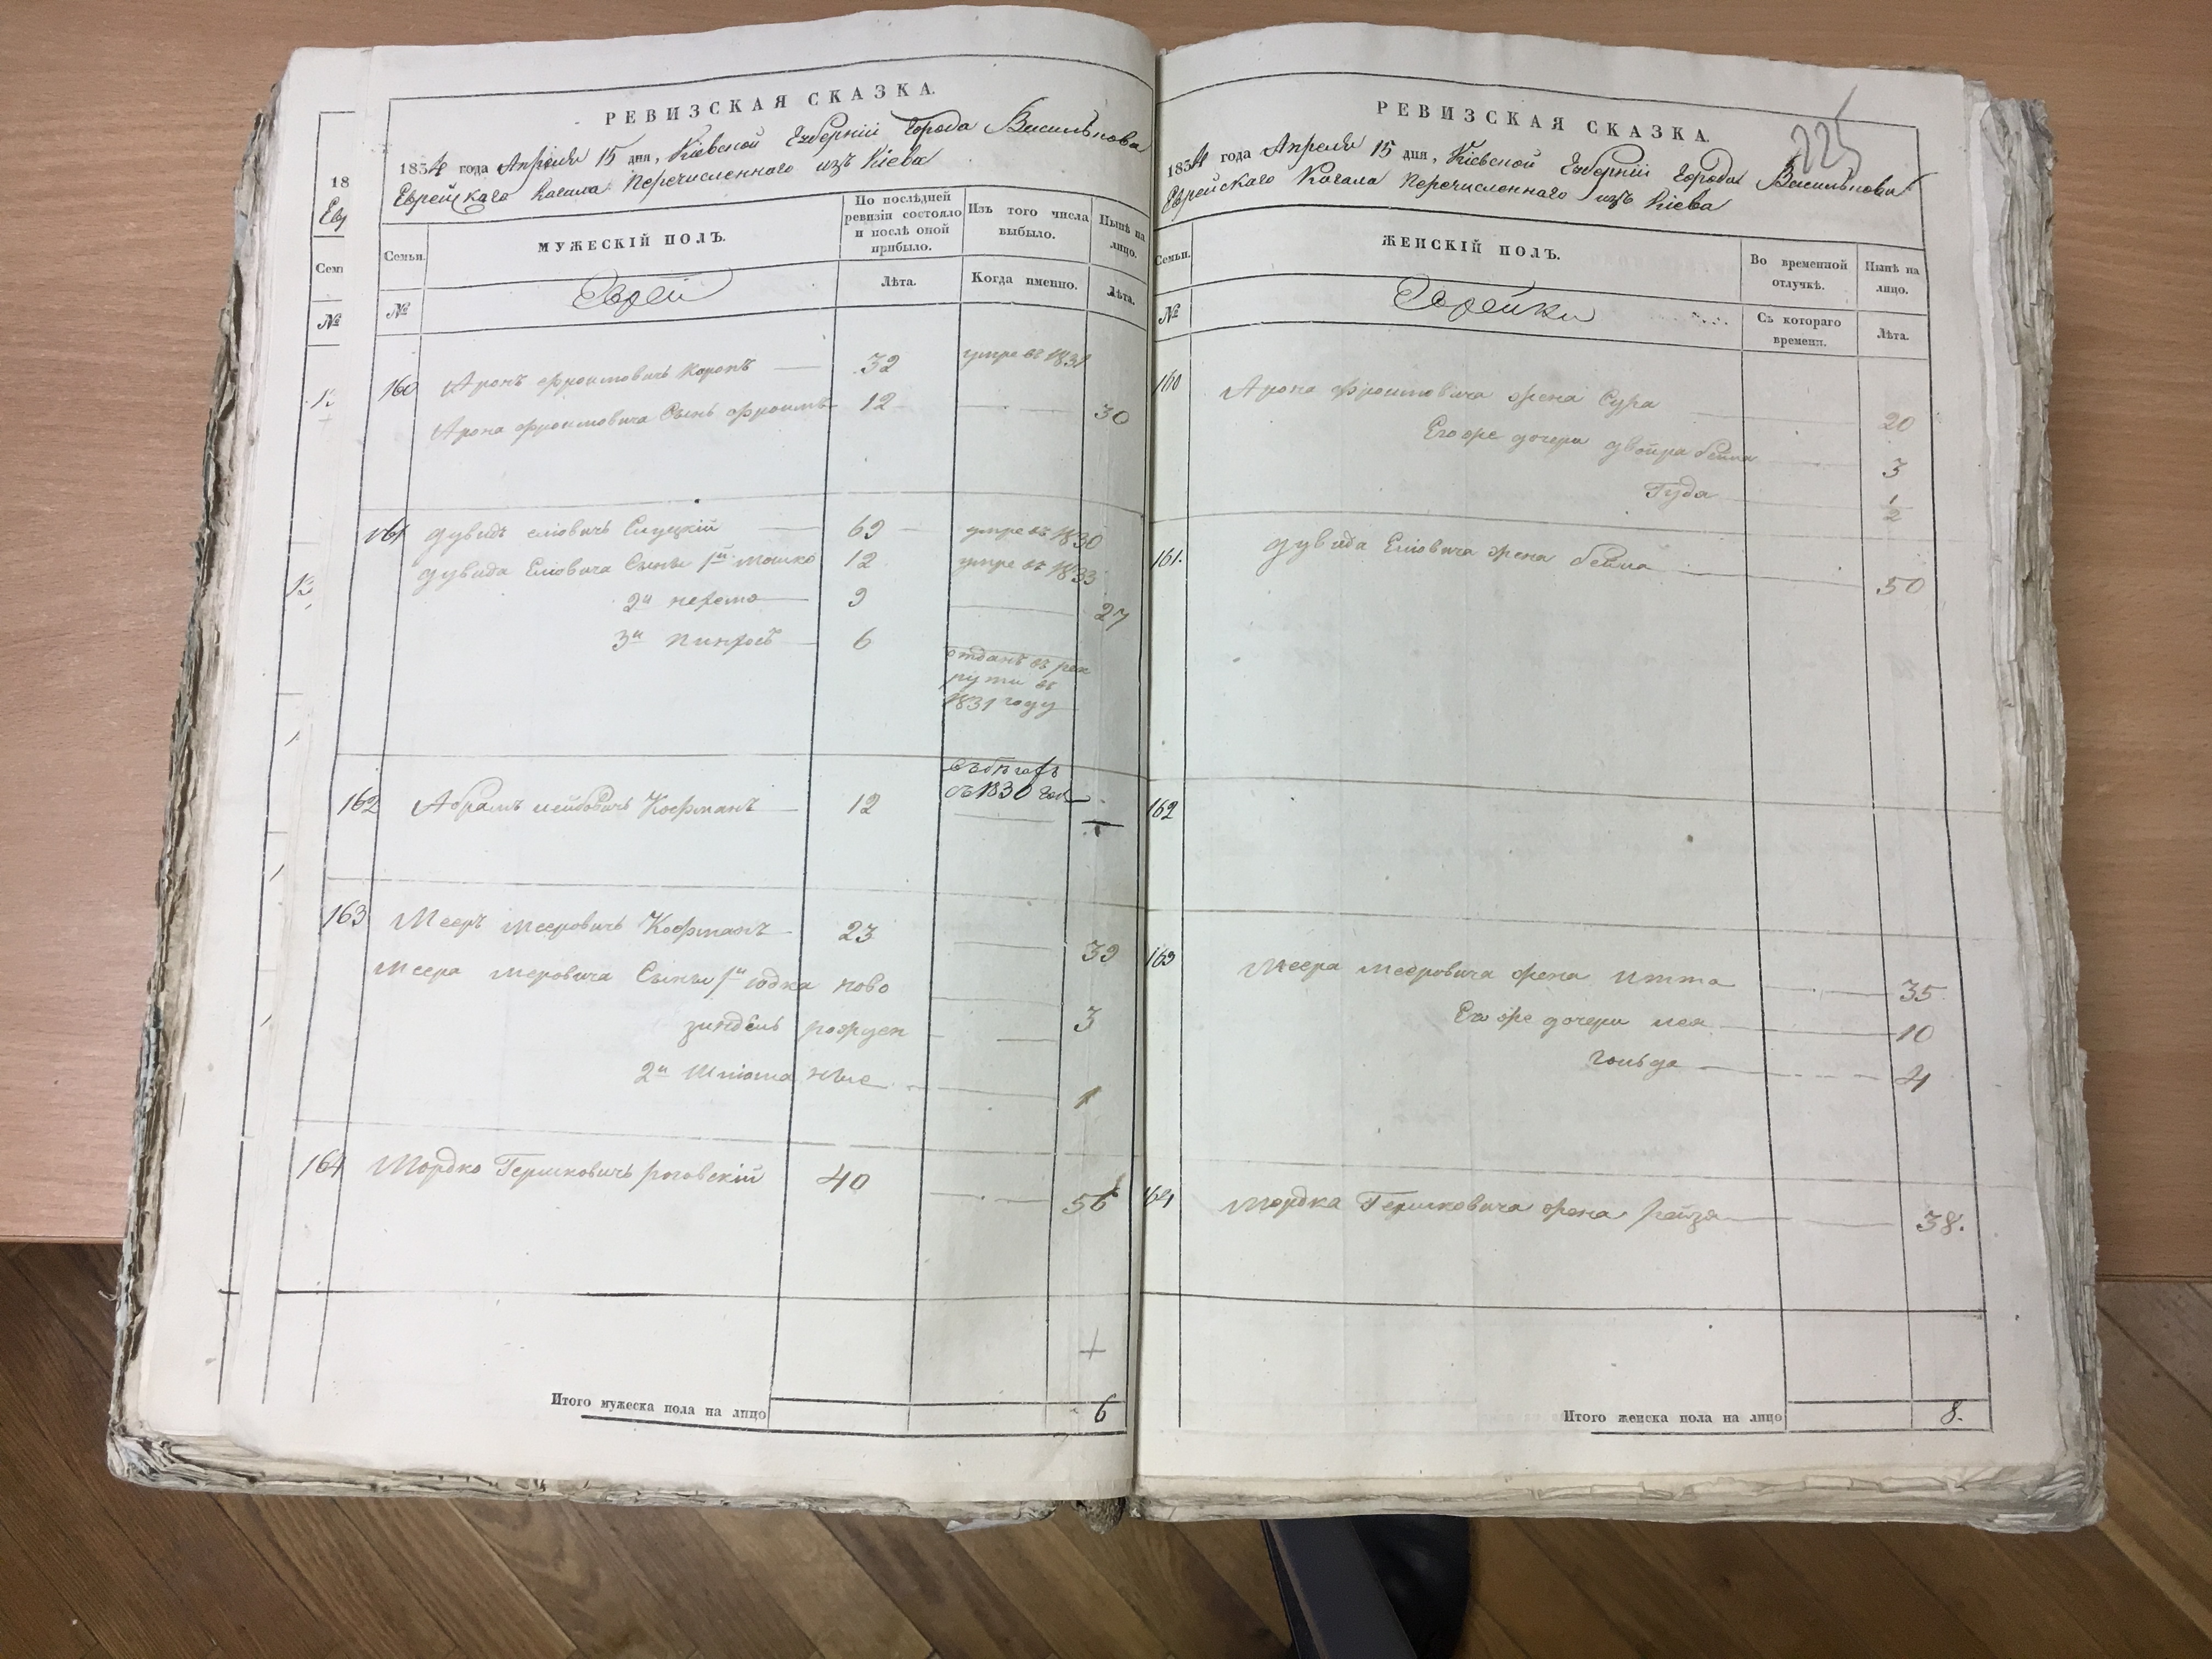 РЕВИЗСКАЯ СКАЗКА.
1834 года Апреля 15 дня, Кіевской Губерніи Города Василькова
Еврейскаго Кагала Перечисленнаго изъ Кіева
Семьи. МУЖЕСКІЙ ПОЛЪ. По послѣдней ревизіи состояло и послѣ оной прибыло. Изъ того числа выбыло. Нынѣ на лицо.
№ Еврей Лѣта. Когда именно. Лѣта.
160 Аронъ Фроимовичь Коропъ 32 умре въ 1831
Арона Фроимовича Сынъ Фроимъ 12 30
161 Дувидъ Еліовичь Слуцкій 69 умре въ 1830
Дувида Еліовича Сыны 1й Мошко 12 умре въ 1833
2й 9 27
3й Пинхосъ 6 отданъ въ рек
руты въ
1831 году
162 Абрамъ Лейбовичь Кофманъ 12 въ бѣгахъ
съ 1830 года
163 Мееръ Мееровичь Кофманъ 23 39
Меера Меровича Сыны 1й Юдка ново
зиндель рожден 3
2й Шлiома ные 1
164 Мордко Гершковичь Роговскій 40 56
Итого мужеска пола на лицо 6
225
РЕВИЗСКАЯ СКАЗКА.
1834 года Апреля 15 дня, Кіевской Губерніи Города Василькова
Еврейскаго Кагала Перечисленнаго изъ Кіева
Семьи. ЖЕНСКІЙ ПОЛЪ. Во временной отлучкѣ. Нынѣ на лицо.
№ Еврейки Съ котораго времени. Лѣта.
160 Арона Фроимовича жена Сура 20
Его же дочери Двойра Бейла 3
Гуда 1/2
161. Дувида Еліовича жена Бейла 50
162
163 Меера Мееровича жена Итта 35
Его же дочери Лея 10
Гольда 4
164 Мордка Гершковича жена Рейза 38.
Итого женска пола на лицо 8.